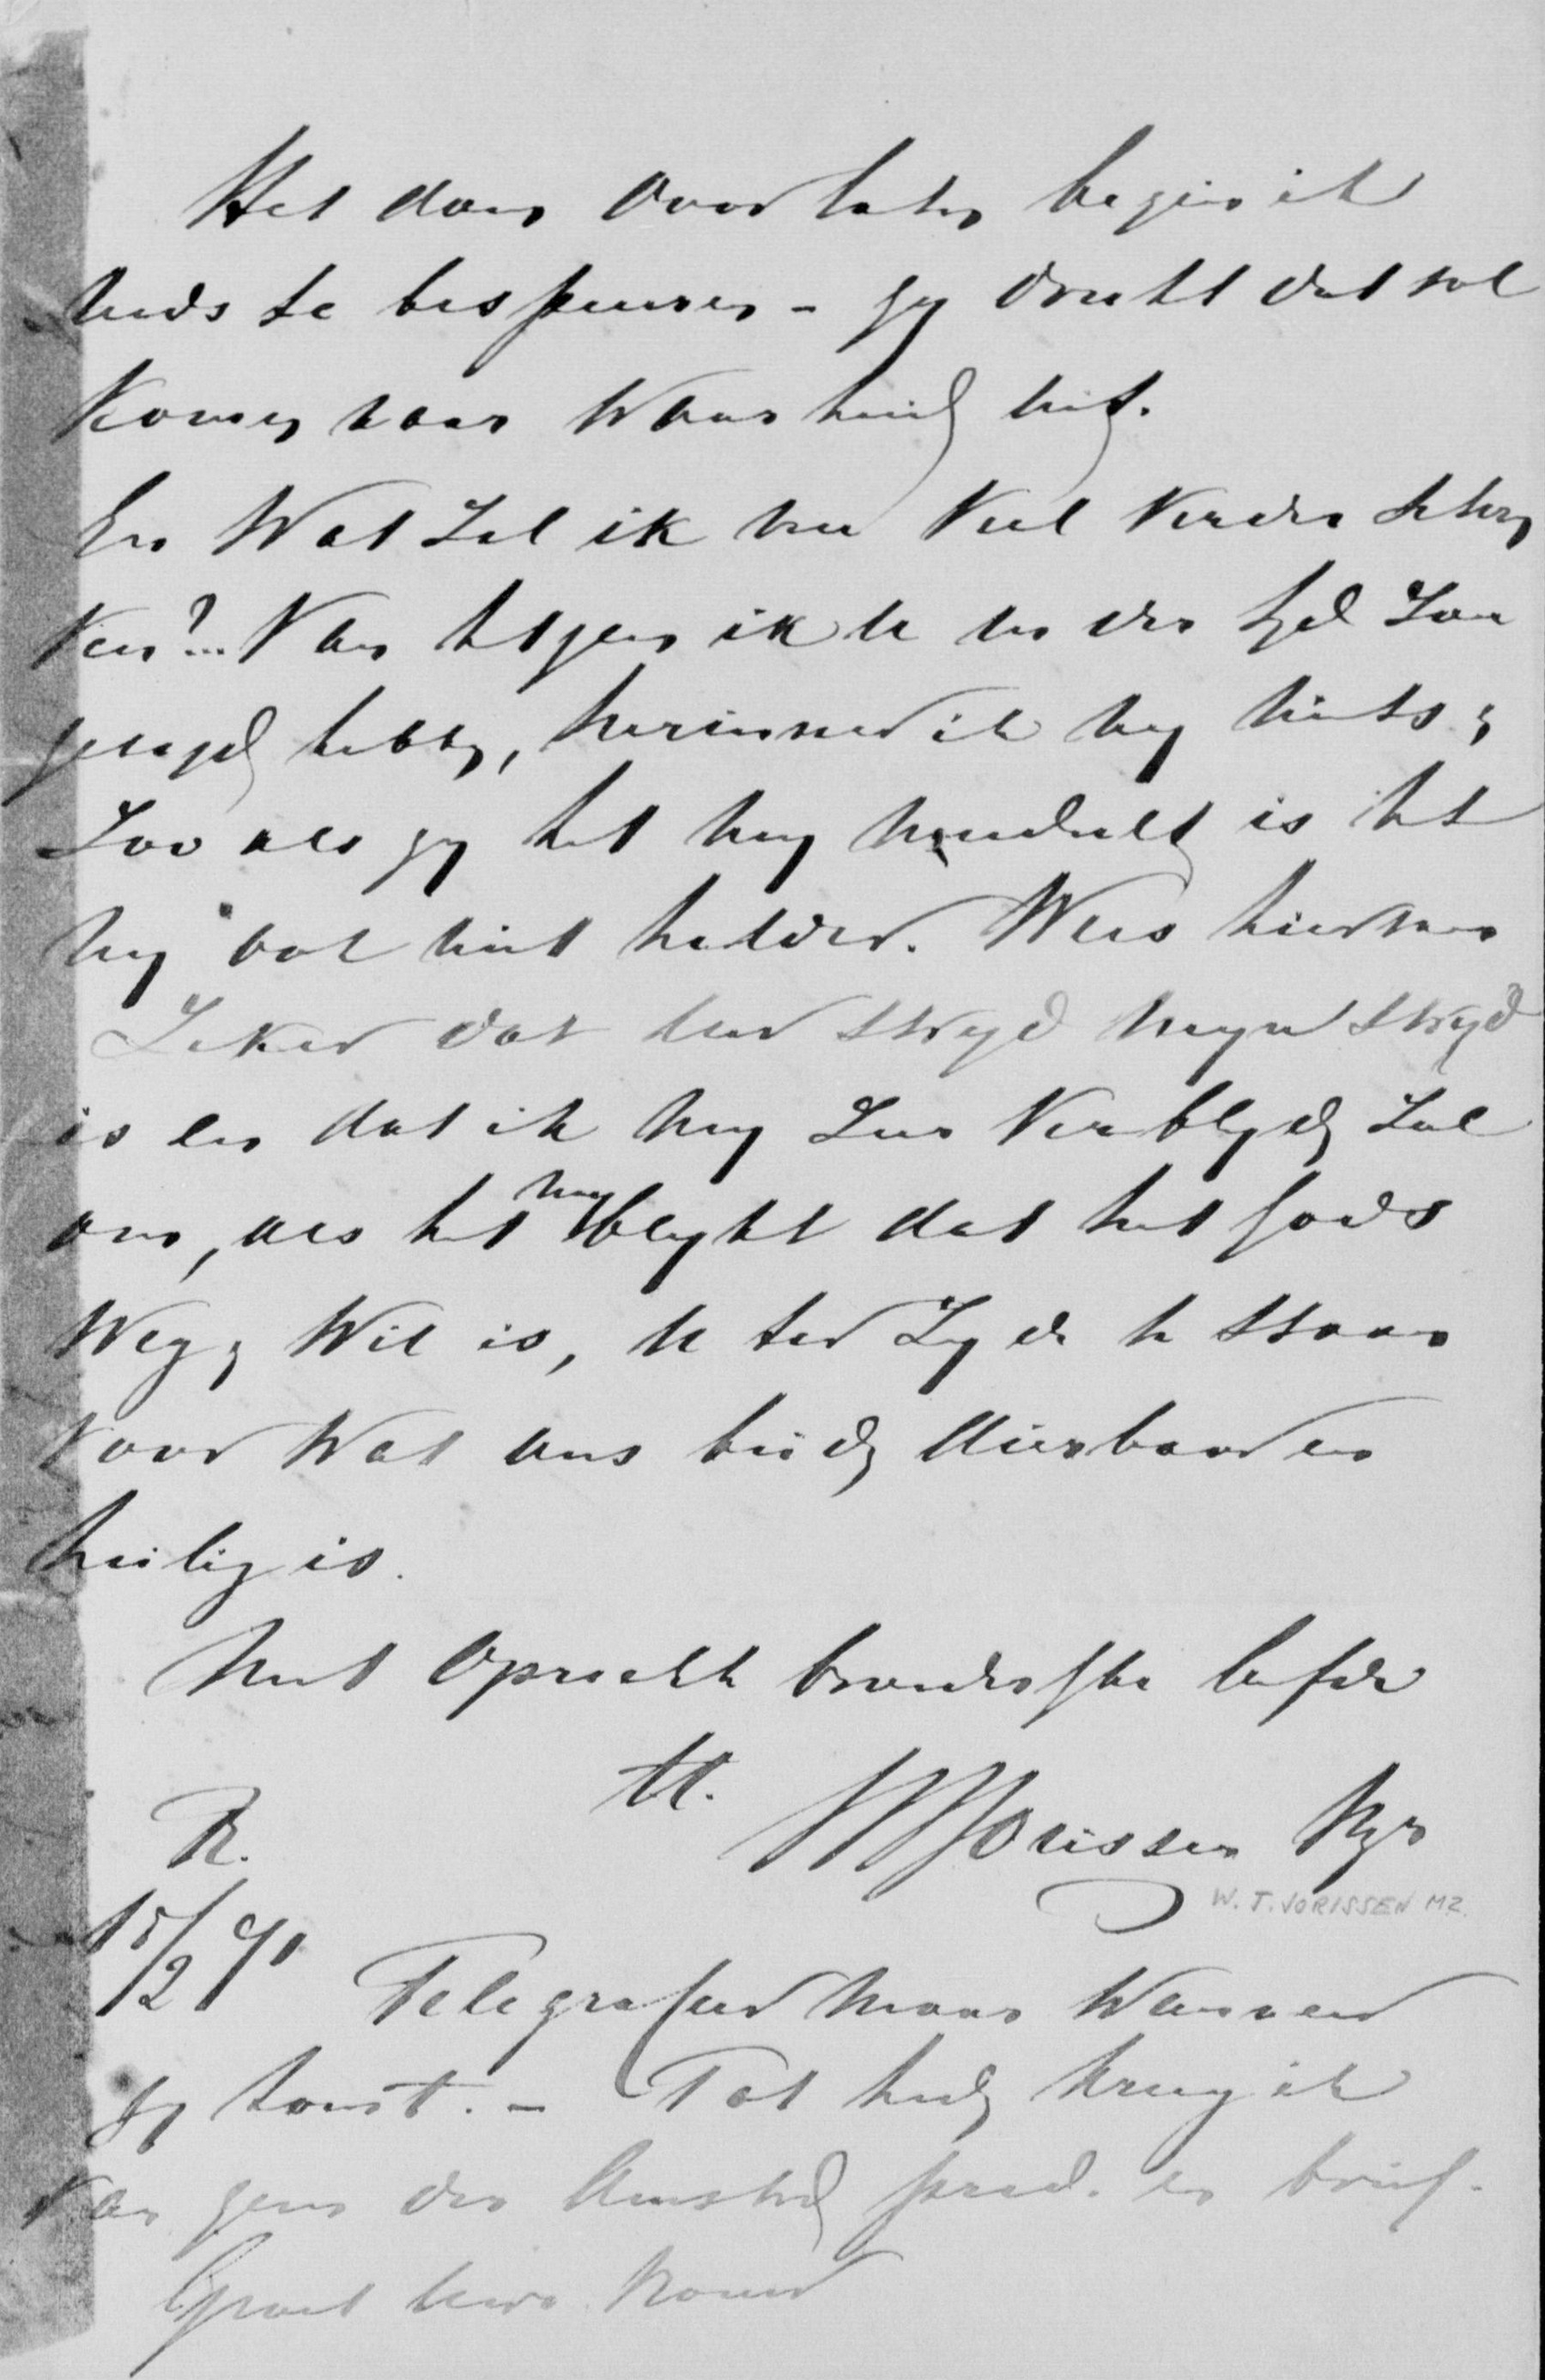 Het doen overlaten begin ik
reeds te bespeuren - gy denkt dat wel
komen naar waarheid uit.
En wat zal ik nu veel verder schry
ven?... Van hetgeen ik u in der tyd zou
gezegd hebben, herinner ik my niets;
zoo als gy het my meedeelt is het
my ook niet helder. Wees hiervan
zeker dat uw stryd myn stryd
is en dat ik my zeer verblyden zal
om, als het my blykt dat het Gods
weg & wil is, u ter zyde te staan
voor wat ons beiden dierbaar en
heilig is.
Met oprechte broederlyke liefde
tt.
WJorissen Mz
R.
W. T. JORISSEN MZ.
15/2 90
Telegrafeer maar wanneer
gy komt. - Tot heden kreeg ik
van geen der Amsterd pred. en brief.
Groet uwe vrouw